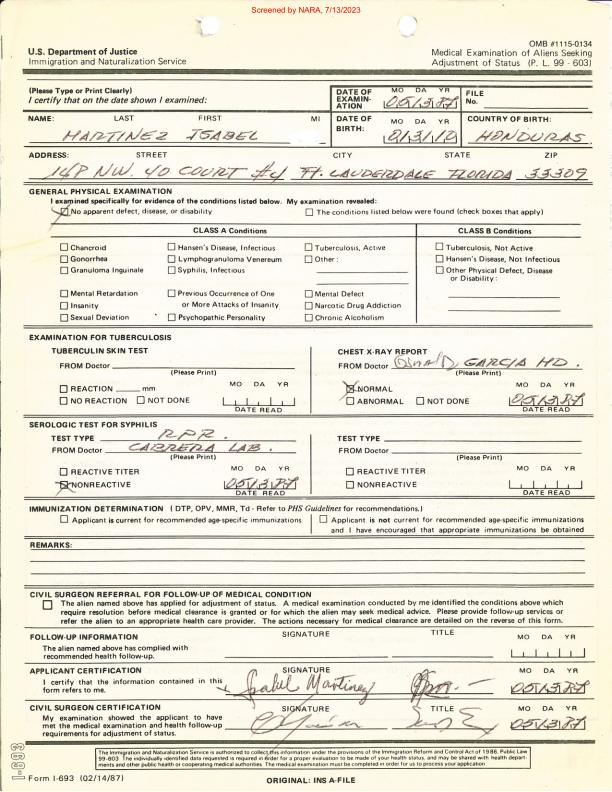 Screened by NARA, 7/13/2023
OMB #1115-0134
U.S. Department of Justice
Immigration and Naturalization Service
Medical Examination of Aliens Seeking
Adjustment of Status (P. L. 99 - 603)
(Please Type or Print Clearly)
I certify that on the date shown I examined:
DATE OF EXAMIN-ATION MO DA YR
FILE No.
NAME: LAST FIRST MI
MARTINEZ ISABEL
DATE OF BIRTH: MO DA YR
COUNTRY OF BIRTH:
HONDURAS.
ADDRESS: STREET CITY STATE ZIP
NW. 40 COURT #4 Ft. LAUDERDALE FLORIDA 33309
GENERAL PHYSICAL EXAMINATION
I examined specifically for evidence of the conditions listed below. My examination revealed:
No apparent defect, disease, or disability The conditions listed below were found (check boxes that apply)
CLASS A Conditions CLASS B Conditions
Chancroid Hansen's Disease, Infectious Tuberculosis, Active Tuberculosis, Not Active
Gonorrhea Lymphogranuloma Venereum Other: Hansen's Disease, Not Infectious
Granuloma Inguinale Syphilis, Infectious Other Physical Defect, Disease
or Disability:
Mental Retardation Previous Occurrence of One Mental Defect
Insanity or More Attacks of Insanity Narcotic Drug Addiction
Sexual Deviation Psychopathic Personality Chronic Alcoholism
EXAMINATION FOR TUBERCULOSIS
TUBERCULIN SKIN TEST CHEST X-RAY REPORT
FROM Doctor FROM Doctor GARCIA MD.
(Please Print) (Please Print)
REACTION mm MO DA YR NORMAL MO DA YR
NO REACTION NOT DONE ABNORMAL NOT DONE
DATE READ DATE READ
SEROLOGIC TEST FOR SYPHILIS
TEST TYPE RPR. TEST TYPE
FROM Doctor CABRERA LAB. FROM Doctor
(Please Print) (Please Print)
REACTIVE TITER MO DA YR REACTIVE TITER MO DA YR
NONREACTIVE NONREACTIVE
DATE READ DATE READ
IMMUNIZATION DETERMINATION (DTP, OPV, MMR, Td - Refer to PHS Guidelines for recommendations.)
Applicant is current for recommended age-specific immunizations Applicant is not current for recommended age-specific immunizations
and I have encouraged that appropriate immunizations be obtained
REMARKS:
CIVIL SURGEON REFERRAL FOR FOLLOW-UP OF MEDICAL CONDITION
The alien named above has applied for adjustment of status. A medical examination conducted by me identified the conditions above which
require resolution before medical clearance is granted or for which the alien may seek medical advice. Please provide follow-up services or
refer the alien to an appropriate health care provider. The actions necessary for medical clearance are detailed on the reverse of this form.
FOLLOW-UP INFORMATION SIGNATURE TITLE MO DA YR
The alien named above has complied with
recommended health follow-up.
APPLICANT CERTIFICATION SIGNATURE TITLE MO DA YR
I certify that the information contained in this
form refers to me.
Isabel Martinez
CIVIL SURGEON CERTIFICATION SIGNATURE TITLE MO DA YR
My examination showed the applicant to have
met the medical examination and health follow-up
requirements for adjustment of status.
The Immigration and Naturalization Service is authorized to collect this information under the provisions of the Immigration Reform and Control Act of 1986, Public Law
99-603. The individually identified data requested is required in order for a proper evaluation to be made of your health status, and may be shared with health depart-
ments and other public health or cooperating medical authorities. The medical examination must be completed in order for us to process your application.
Form I-693 (02/14/87)
ORIGINAL: INS A-FILE